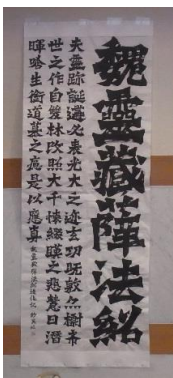 魏靈藏薛法紹
夫靈跡誕遘必表光大之迹玄功既敷亦樹希
世之作自雙林改照大千懷綴暎之悲慧日潛
暉唅生銜道慕之痛是以應真